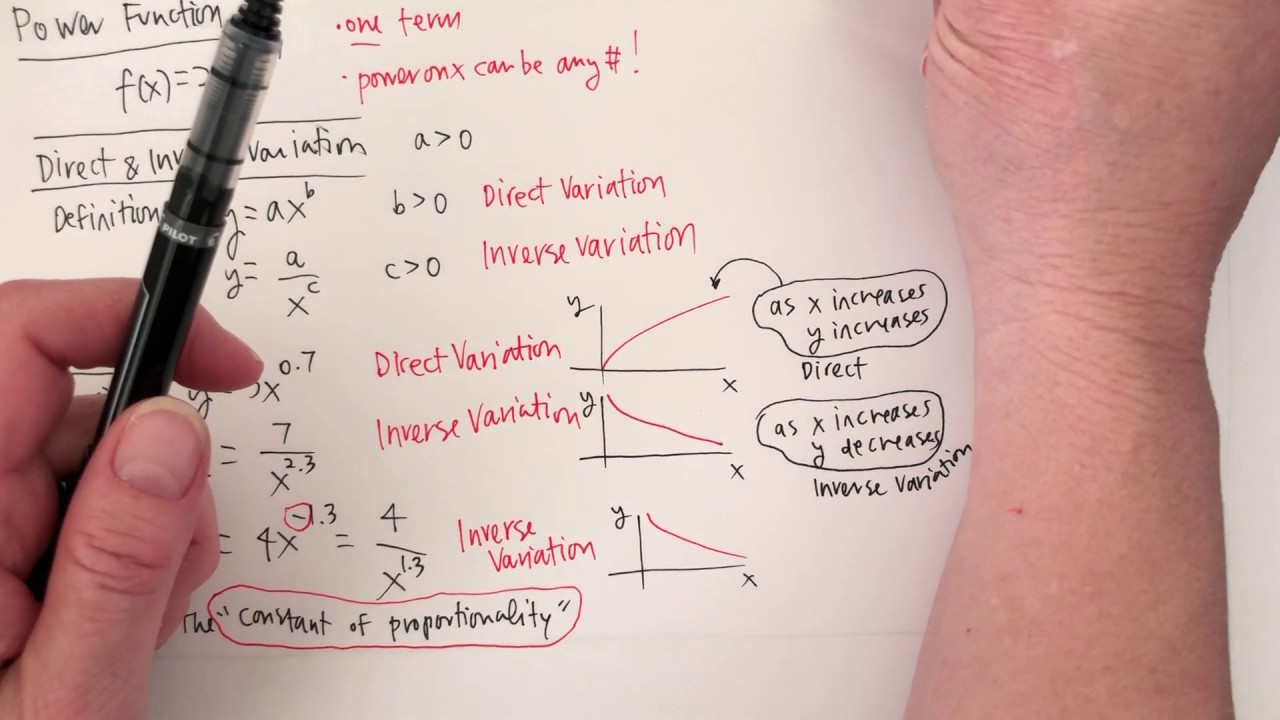 Power Function
• one term
f(x)=
• power on x can be any # !
Direct & Inv Variation a > 0
Definition y = ax^b b > 0 Direct Variation
y = a/x^c c > 0 Inverse Variation
y x^0.7 Direct Variation
= 7/x^2.3 Inverse Variation
= 4x^-1.3 = 4/x^1.3 Inverse
Variation
The "constant of proportionality"
y
x
as x increases
y increases
Direct
y
x
as x increases
y decreases
Inverse Variation
y
x
PILOT